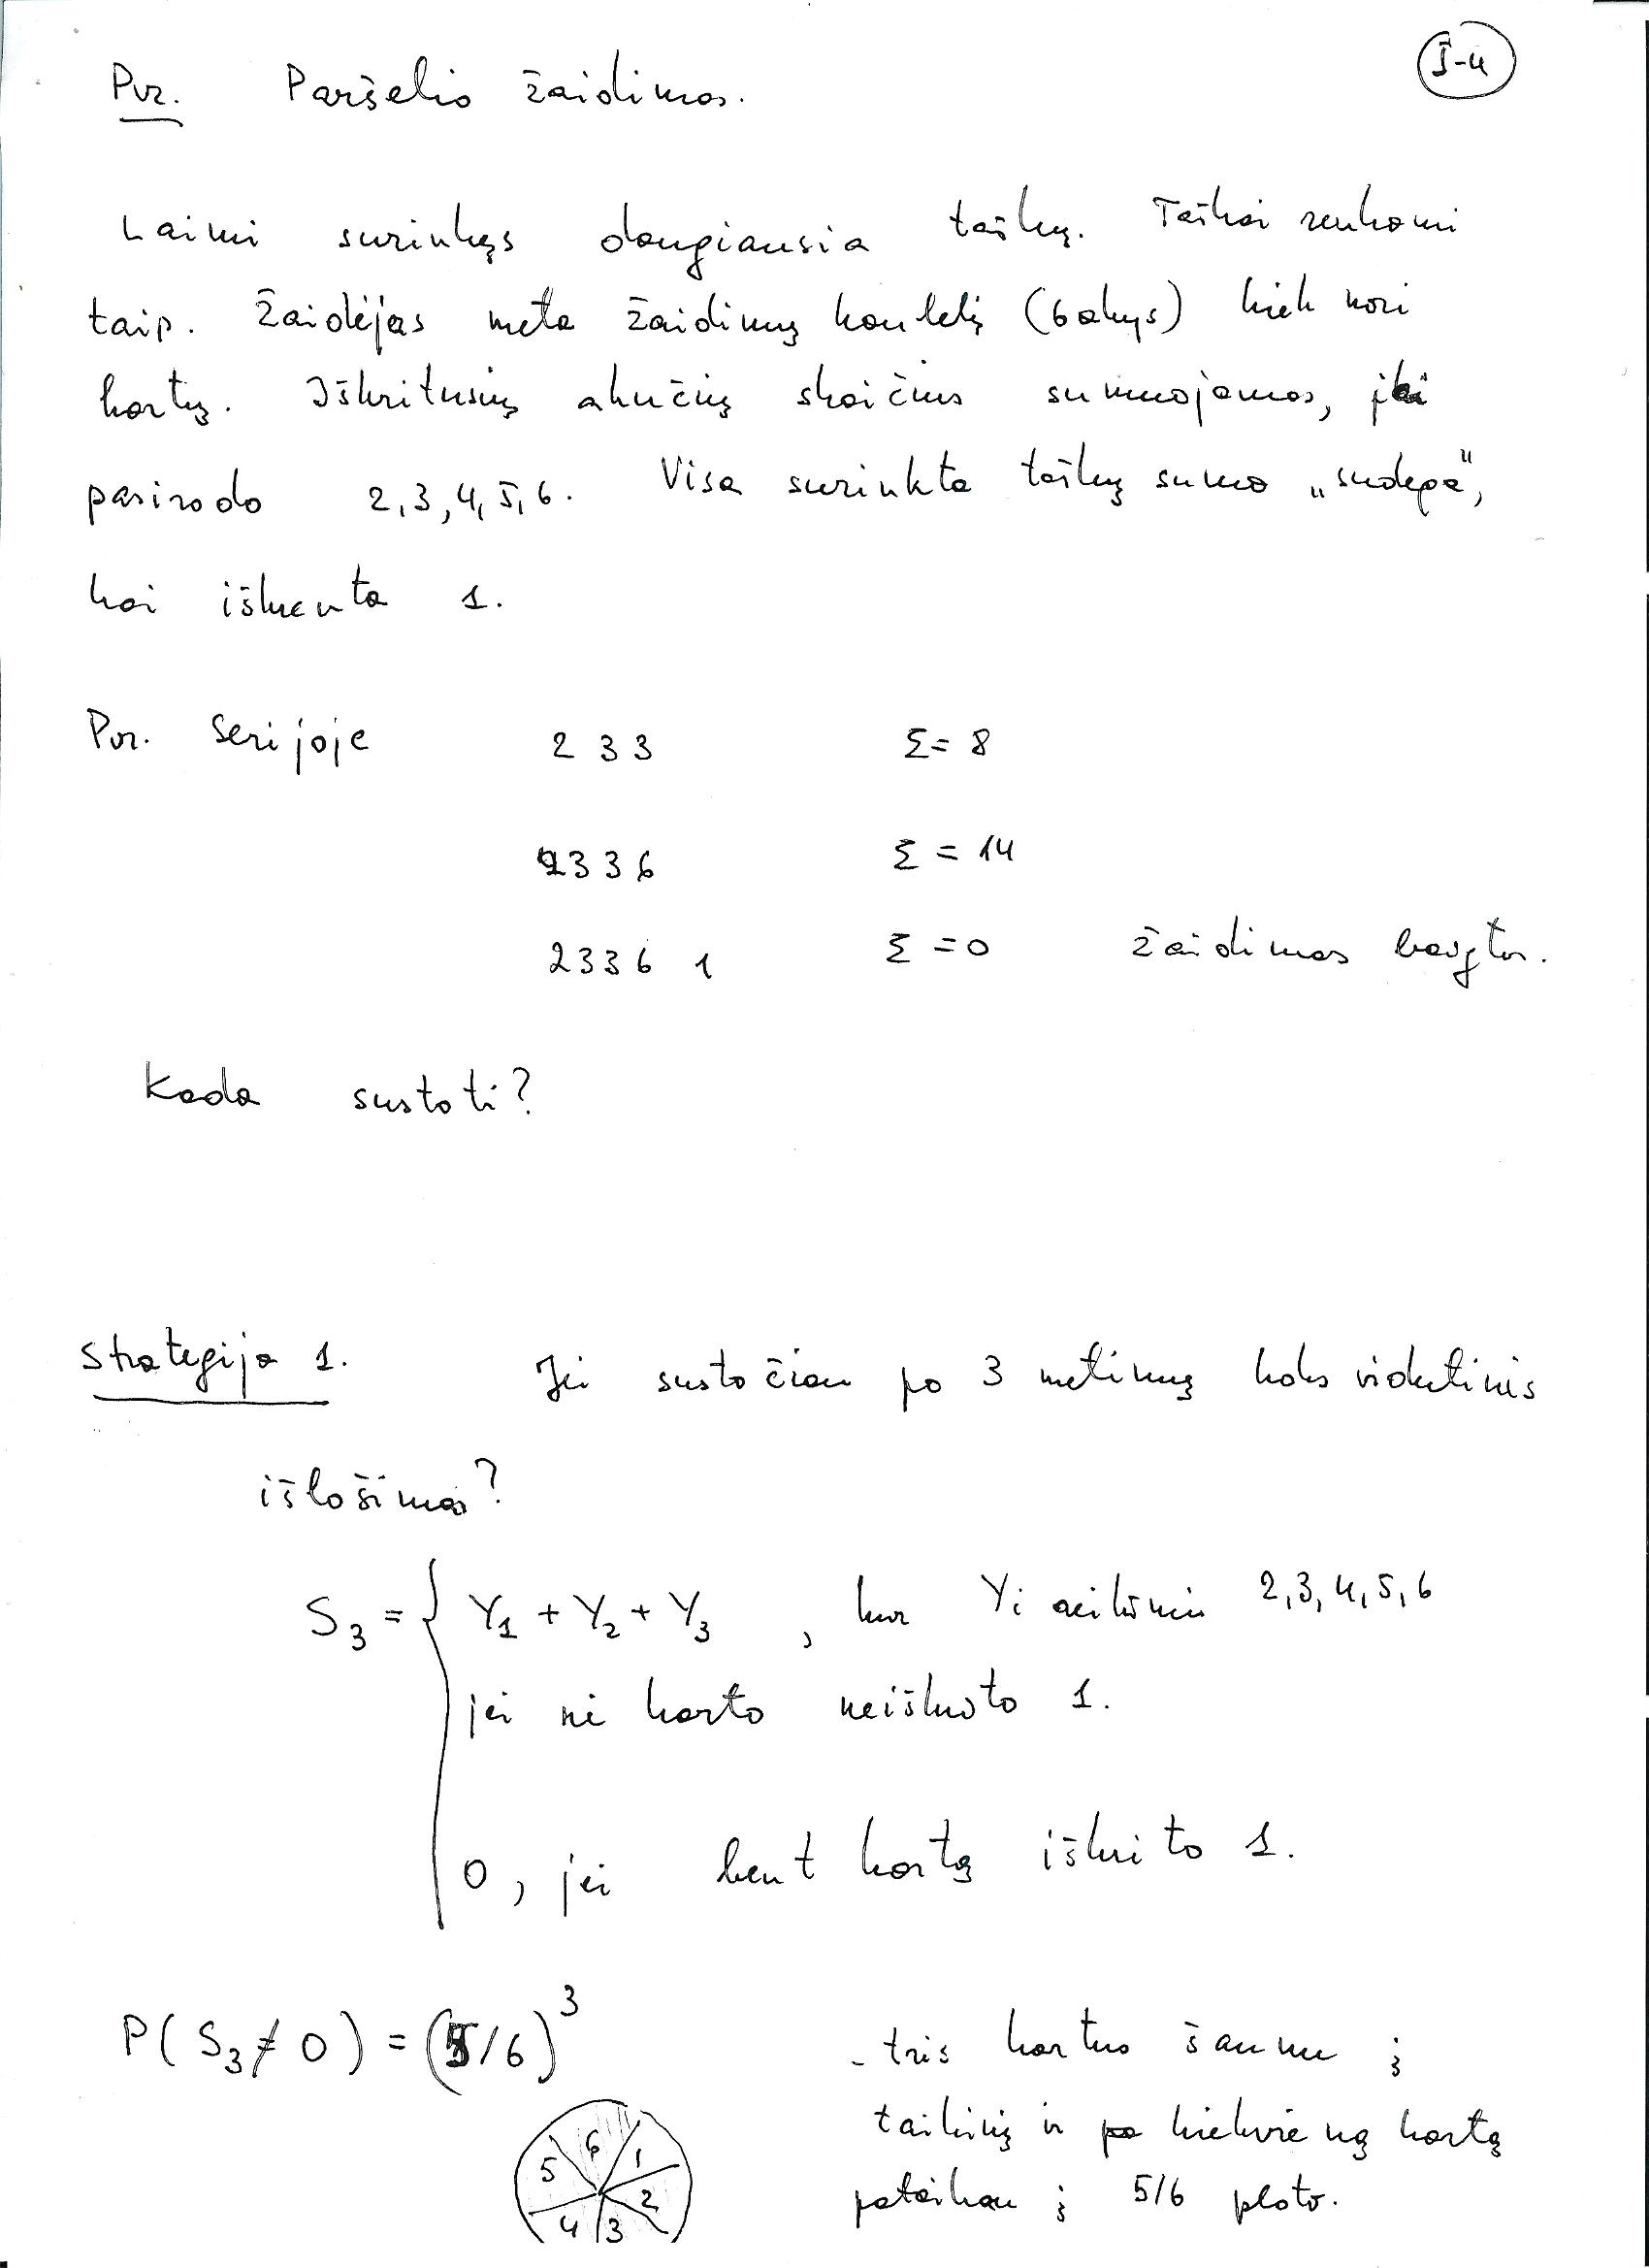 I-4
Pvz. Paršelio žaidimas.
Laimi surinkęs daugiausia taškų. Taškai renkami
taip. Žaidėjas meta žaidimų kauliuką (6 akys) kiek nori
kartų. Iškritusių akučių skaičius sumuojamas, jei
pasirodo 2,3,4,5,6. Visa surinkta taškų suma „sudega",
kai iškrenta 1.
Pvz. Serijoje 2 3 3 Σ= 8
2 3 3 6 Σ = 14
2 3 3 6 1 Σ = 0 žaidimas baigtas.
Kada sustoti?
Strategija 1. Jei sustočiau po 3 metimų koks vidutinis
išlošimas?
S3 = { Y1 + Y2 + Y3 , kur Yi 2,3,4,5,6
jei nė karto neiškrito 1.
0, jei bent kartą iškrito 1.
P(S3 ≠ 0) = (5/6)^3 - tris kartus šaunu į
taikinį ir kiekvieną kartą
pataikau į 5/6 ploto.
5 6 1
4 3 2